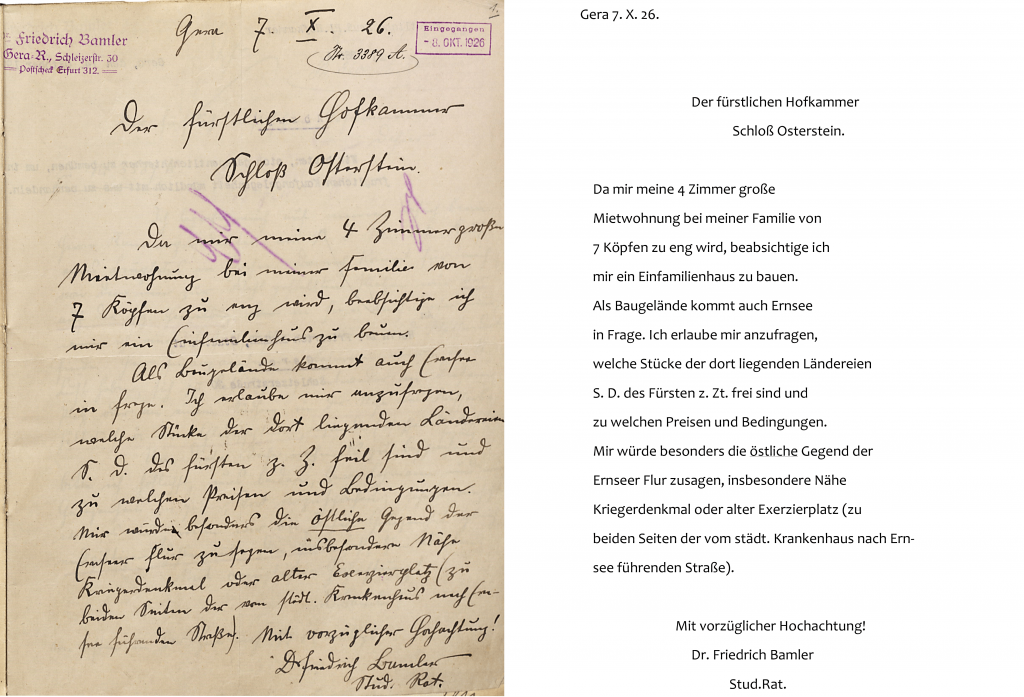 Friedrich Bamler
Gera-R., Schleizerstr. 30
Postscheck Erfurt 312.
Gera 7. X. 26.
Eingegangen
- 8. OKT. 1926
Nr. 3389 A.
Der fürstlichen Hofkammer
Schloß Osterstein.
Da mir meine 4 Zimmer große
Mietwohnung bei meiner Familie von
7 Köpfen zu eng wird, beabsichtige ich
mir ein Einfamilienhaus zu bauen.
Als Baugelände kommt auch Ernsee
in Frage. Ich erlaube mir anzufragen,
welche Stücke der dort liegenden Ländereien
S. D. des Fürsten z. Z. feil sind und
zu welchen Preisen und Bedingungen.
Mir würde besonders die östliche Gegend der
Ernseer Flur zusagen, insbesondere Nähe
Kriegerdenkmal oder alter Exerzierplatz (zu
beiden Seiten der vom städt. Krankenhaus nach Ern-
see führenden Straße). Mit vorzüglicher Hochachtung!
Dr Friedrich Bamler
Stud. Rat.
Gera 7. X. 26.
Der fürstlichen Hofkammer
Schloß Osterstein.
Da mir meine 4 Zimmer große
Mietwohnung bei meiner Familie von
7 Köpfen zu eng wird, beabsichtige ich
mir ein Einfamilienhaus zu bauen.
Als Baugelände kommt auch Ernsee
in Frage. Ich erlaube mir anzufragen,
welche Stücke der dort liegenden Ländereien
S. D. des Fürsten z. Zt. frei sind und
zu welchen Preisen und Bedingungen.
Mir würde besonders die östliche Gegend der
Ernseer Flur zusagen, insbesondere Nähe
Kriegerdenkmal oder alter Exerzierplatz (zu
beiden Seiten der vom städt. Krankenhaus nach Ern-
see führenden Straße).
Mit vorzüglicher Hochachtung!
Dr. Friedrich Bamler
Stud.Rat.